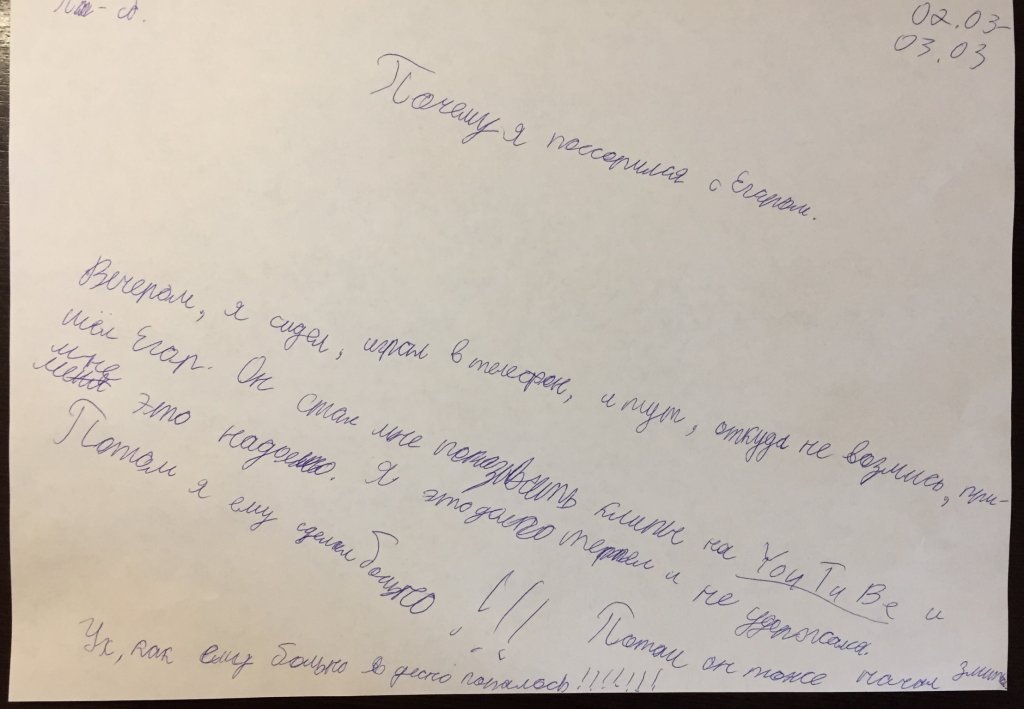 02.03-
03.03
Почему я поссорился с Егаром.
Вечером, я сидел, играл в телефон, и тут, откуда не возмись, при-
шёл Егар. Он стал мне показывать клипы на YouTuBe и
мне
меня это надоело. Я это долго терпел и не удержался.
Потом я ему сделал больно !!! Потом он тоже начал
Ух, как ему больно в десно попалось!!!!!!!